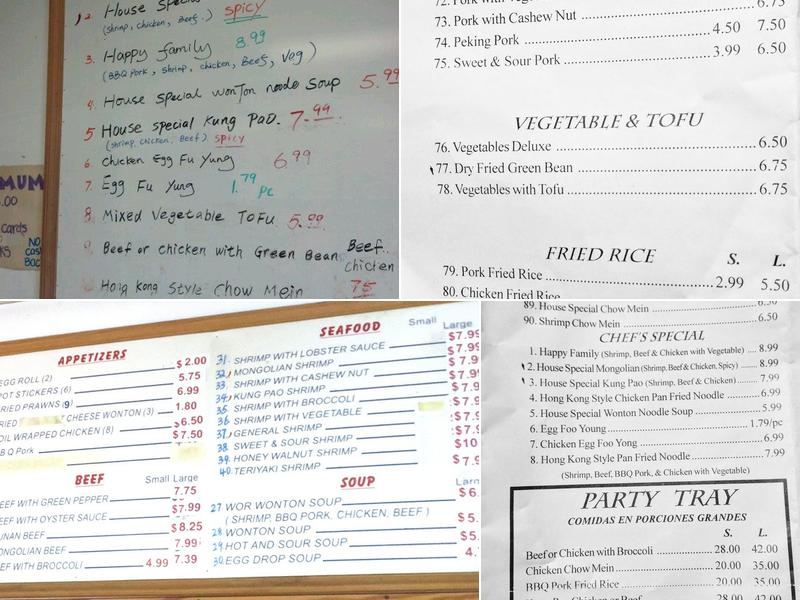 2. House Special
(shrimp, chicken, Beef.) spicy
3. Happy family 8.99
(BBQ Pork, shrimp, chicken, Beef, Veg)
4. House Special Wonton noodle Soup 5.99
5 House special Kung Pao. 7.99
(shrimp, Chicken, Beef) spicy
6. Chicken Egg Fu Yung 6.99
7. Egg Fu Yung 1.79 pc
8. Mixed Vegetable Tofu 5.99
9. Beef or chicken with Green Bean Beef..
chicken
Hong Kong Style Chow Mein 75
MUM
.00
cards
KS NO
73. Pork with Cashew Nut
74. Peking Pork 4.50 7.50
75. Sweet & Sour Pork 3.99 6.50
VEGETABLE & TOFU
76. Vegetables Deluxe 6.50
77. Dry Fried Green Bean 6.75
78. Vegetables with Tofu 6.75
FRIED RICE S. L.
79. Pork Fried Rice 2.99 5.50
80. Chicken Fried Rice
APPETIZERS
EGG ROLL (2) $2.00
POT STICKERS (6) 5.75
FRIED PRAWNS (9) 6.99
CHEESE WONTON (3) 1.80
OIL WRAPPED CHICKEN (8) $6.50
B Q Pork $7.50
BEEF Small Large
BEEF WITH GREEN PEPPER 7.75
BEEF WITH OYSTER SAUCE $7.99
UNAN BEEF $8.25
ONGOLIAN BEEF 7.99
EF WITH BROCCOLI 4.99 7.39
SEAFOOD Small Large
31. SHRIMP WITH LOBSTER SAUCE $7.99
32. MONGOLIAN SHRIMP $7.99
33. SHRIMP WITH CASHEW NUT $7.9
34. KUNG PAO SHRIMP $7.9
35 SHRIMP WITH BROCCOLI $7.9
36 SHRIMP WITH VEGETABLE $7.
37. GENERAL SHRIMP $7.
38 SWEET & SOUR SHRIMP $7.
39. HONEY WALNUT SHRIMP $10
40. TERIYAKI SHRIMP $7.9
SOUP Large
27 WOR WONTON SOUP $6.
(SHRIMP, BBQ PORK, CHICKEN, BEEF)
28 WONTON SOUP $5.
29 HOT AND SOUR SOUP $5.
30. EGG DROP SOUP 4.
89. House Special Chow Mein 6.50
90. Shrimp Chow Mein 6.50
CHEF'S SPECIAL
1. Happy Family (Shrimp, Beef & Chicken with Vegetable) 8.99
2. House Special Mongolian (Shrimp, Beef & Chicken, Spicy) 8.99
3. House Special Kung Pao (Shrimp, Beef & Chicken) 7.99
4. Hong Kong Style Chicken Pan Fried Noodle 6.99
5. House Special Wonton Noodle Soup 5.99
6. Egg Foo Young 1.79/pc
7. Chicken Egg Foo Yong 6.99
8. Hong Kong Style Pan Fried Noodle 7.99
(Shrimp, Beef, BBQ Pork, & Chicken with Vegetable)
PARTY TRAY
COMIDAS EN PORCIONES GRANDES
S. L.
Beef or Chicken with Broccoli 28.00 42.00
Chicken Chow Mein 20.00 35.00
BBQ Pork Fried Rice 20.00 35.00
28.00 42.00